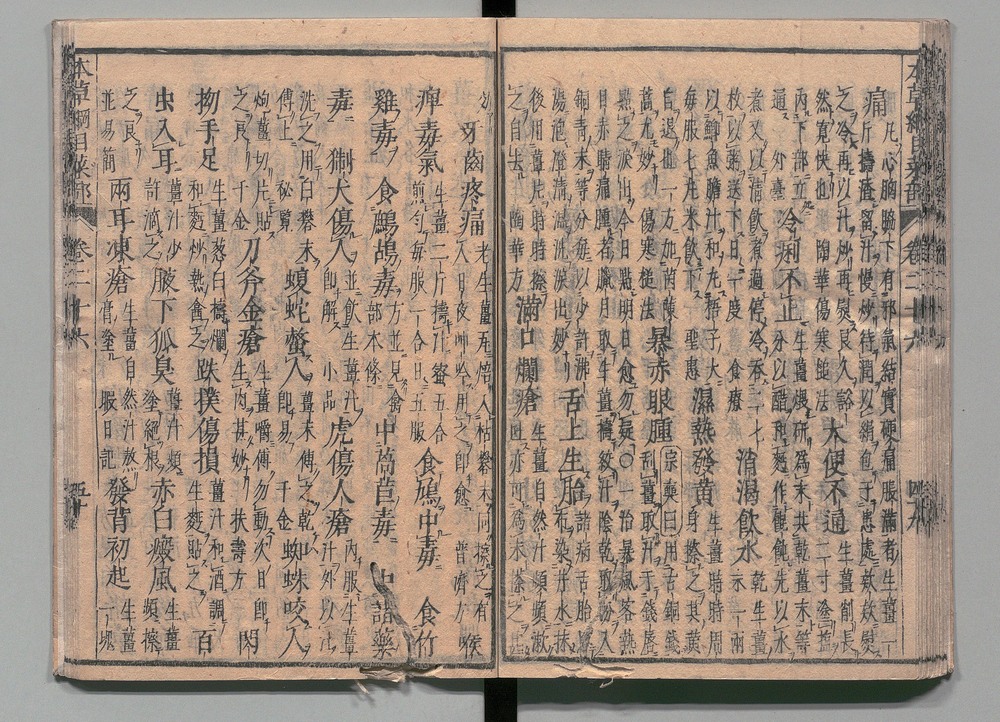 本草綱目菜部 卷二十六 四十九
痛 凡心胸脇下有邪氣結實硬痛脹滿者生薑一斤搗渣留汁慢炒待潤以絹包于患處款款熨
之冷再以汁炒再熨良久豁然寬快也陶華傷寒鎚法 大便不通 生薑削長二寸塗鹽
內下部立通外臺 冷痢不止 生薑煨研爲末共乾薑末等分以醋和麪作餛飩先以水
煮又以清飲煮過停冷吞二七枚以粥送下日一度食療 消渴飲水 乾生薑末一兩
以鯽魚膽汁和丸梧子大每服七丸米飲下聖惠 濕熱發黃 生薑時時周身擦之其黃
自退也一方加茵陳蒿尤妙傷寒槌法 暴赤眼腫 宗奭曰用古銅錢刮薑取汁于錢唇
點之淚出今日點明日愈勿疑○一治暴風客熱目赤睛痛腫者臘月取生薑搗絞汁陰乾取粉入
銅青末等分每以少許沸湯泡澄清溫洗淚出妙 舌上生胎 諸病舌胎以布染井水抹
後用薑片時時擦之自去陶華方 滿口爛瘡 生薑自然汁頻頻漱吐亦可爲末擦之甚
效 牙齒疼痛 老生薑瓦焙入枯礬末同擦之有人日夜呻吟用之即愈普濟方 喉
痺毒氣 生薑二斤搗汁蜜五合煎勻每服一合日五服 食鳩中毒 食竹
雞毒 食鷓鴣毒 方並見禽部本條 中萵苣毒 中諸藥
毒 猘犬傷人 並飲生薑汁即解小品 虎傷人瘡 內服生薑汁外以汁
洗之用白礬末傅上秘覽 蝮蛇螫人 薑末傅之乾即易千金 蜘蛛咬人
炮薑切片貼之良千金 刀斧金瘡 生薑嚼傅勿動次日即生肉甚妙扶壽方 閃
拗手足 生薑葱白搗爛和麪炒熱盦之 跌撲傷損 薑汁和酒調生麪貼之 百
虫入耳 薑汁少許滴之 腋下狐臭 薑汁頻塗絕根 赤白癜風 生薑頻擦
之良並易簡 兩耳凍瘡 生薑自然汁熬膏塗暇日記 發背初起 生薑一塊
本草綱目菜部 卷二十六 五十